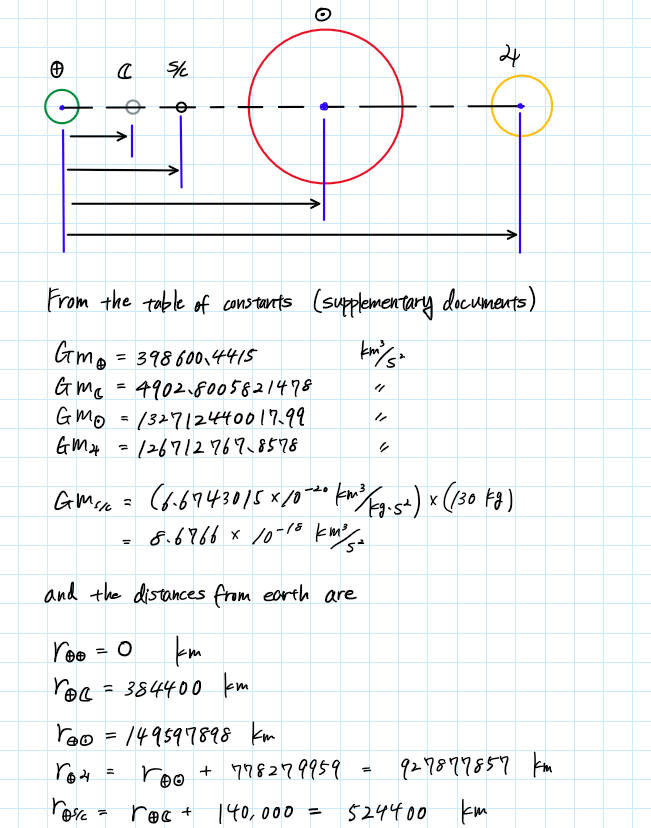 ☉
⊕ ☾ S/c ♃
From the table of constants (supplementary documents)
Gm⊕ = 398600.4415 km³/s²
Gm☾ = 4902.8005821478 〃
Gm☉ = 132712440017.99 〃
Gm♃ = 126712767.8578 〃
Gm s/c = (6.6743015 × 10⁻²⁰ km³/kg·s²) × (130 kg)
= 8.6766 × 10⁻¹⁸ km³/s²
and the distances from earth are
r⊕⊕ = 0 km
r⊕☾ = 384400 km
r⊕☉ = 149597898 km
r⊕♃ = r⊕☉ + 778279959 = 927877857 km
r⊕s/c = r⊕☾ + 140,000 = 524400 km